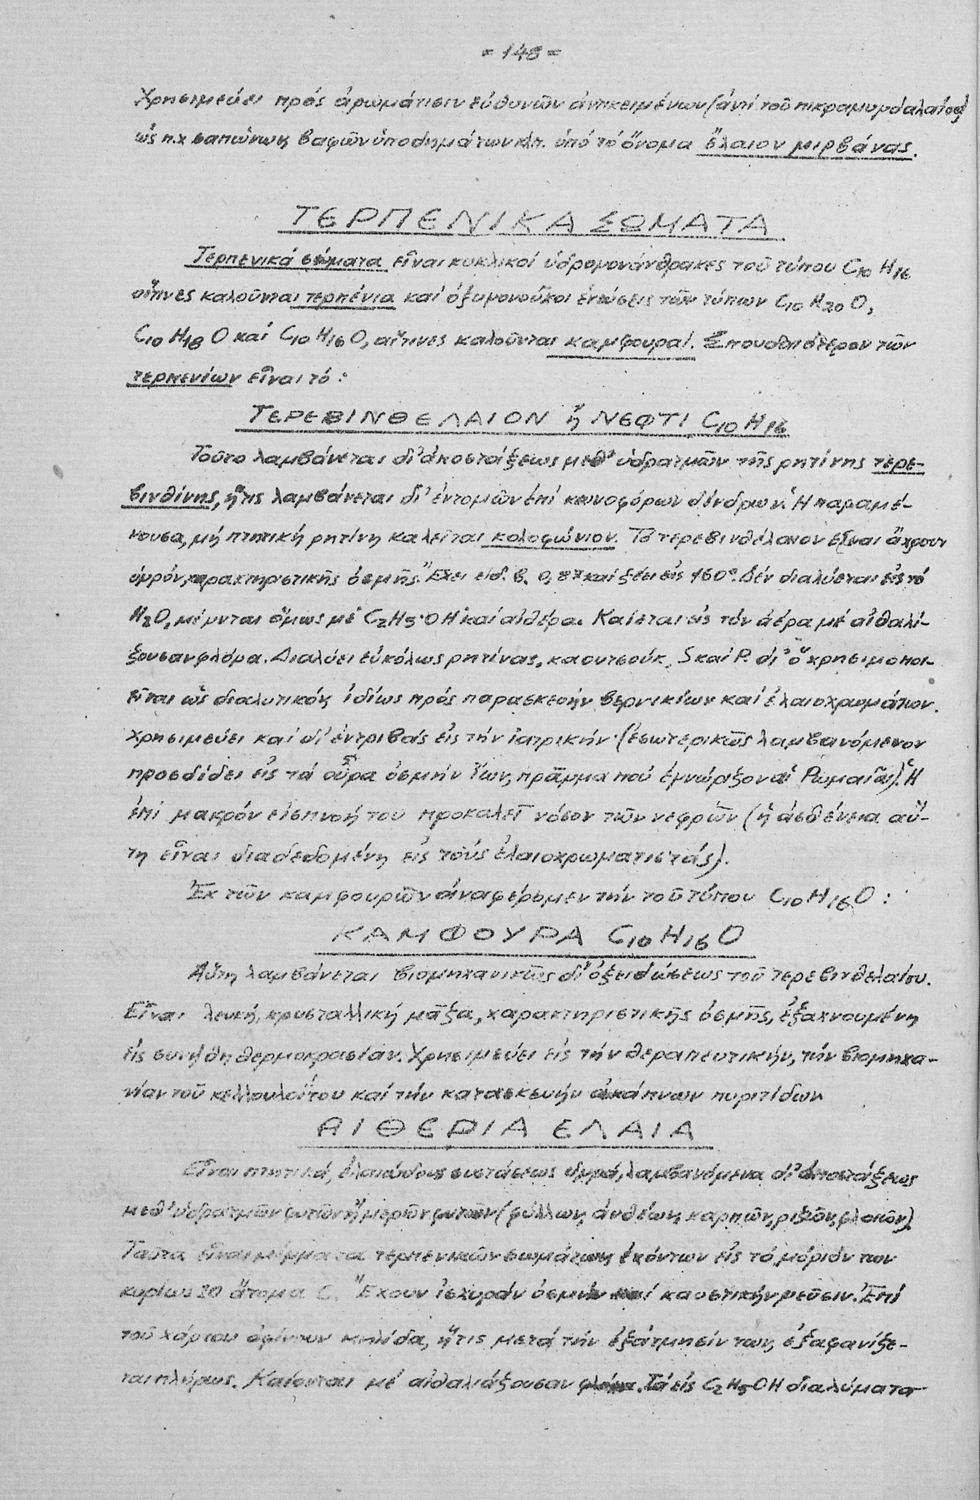 = 148 =
Χρησιμεύει πρός ἀρωμάτισιν εὐθυνῶν ἀντικειμένων (ἀντί τοῦ πικραμυγδαλαίου)
ὡς π.χ σαπώνων, βαφῶν ὑποδημάτων κλπ. ὑπό τό ὄνομα ἔλαιον μιρβάνας.
ΤΕΡΠΕΝΙΚΑ ΣΩΜΑΤΑ
Τερπενικά σώματα εἶναι κυκλικοί ὑδρογονάνθρακες τοῦ τύπου C10 H16
οἵτινες καλοῦνται τερπένια καί ὀξυγονοῦχοι ἑνώσεις τῶν τύπων C10 H20 O,
C10 H18 O καί C10 H16 O, αἵτινες καλοῦνται καμφουραί. Σπουδαιότερον τῶν
τερπενίων εἶναι τό :
ΤΕΡΕΒΙΝΘΕΛΑΙΟΝ ἤ ΝΕΦΤΙ C10 H16
Τοῦτο λαμβάνεται δι' ἀποστάξεως μεθ' ὑδρατμῶν τῆς ρητίνης τερε-
βινθίνης, ἥτις λαμβάνεται δι' ἐντομῶν ἐπί κωνοφόρων δένδρων. Ἡ παραμέ-
νουσα, μή πτητική ρητίνη καλεῖται κολοφώνιον. Τό τερεβινθέλαιον εἶναι ἄχρουν
ὑγρόν, χαρακτηριστικῆς ὀσμῆς. Ἔχει εἰδ. β. 0,87 καί ζέει εἰς 160°. Δέν διαλύεται εἰς τό
H2O, μίγνυται ὅμως μέ C2H5·OH καί αἰθέρα. Καίεται εἰς τόν ἀέρα μέ αἰθαλί-
ζουσαν φλόγα. Διαλύει εὐκόλως ρητίνας, καουτσούκ, S καί P. δι' ὅ χρησιμοποι-
εῖται ὡς διαλυτικόν, ἰδίως πρός παρασκευήν βερνικίων καί ἐλαιοχρωμάτων.
Χρησιμεύει καί δι' ἐντριβάς εἰς τήν ἰατρικήν (ἐσωτερικῶς λαμβανόμενον
προσδίδει εἰς τά οὖρα ὀσμήν ἴων, πρᾶγμα πού ἐγνώριζον αἱ Ρωμαῖαι). Ἡ
ἐπί μακρόν εἰσπνοή του προκαλεῖ νόσον τῶν νεφρῶν (ἡ ἀσθένεια αὕ-
τη εἶναι διαδεδομένη εἰς τούς ἐλαιοχρωματιστάς).
Ἐκ τῶν καμφουρῶν ἀναφέρομεν τήν τοῦ τύπου C10 H16 O :
ΚΑΜΦΟΥΡΑ C10 H16 O
Αὕτη λαμβάνεται βιομηχανικῶς δι' ὀξειδώσεως τοῦ τερεβινθελαίου.
Εἶναι λευκή, κρυσταλλική μᾶζα, χαρακτηριστικῆς ὀσμῆς, ἐξαχνουμένη
εἰς συνήθη θερμοκρασίαν. Χρησιμεύει εἰς τήν θεραπευτικήν, τήν βιομηχα-
νίαν τοῦ κελλουλοΐτου καί τήν κατασκευήν ἀκάπνων πυριτίδων
ΑΙΘΕΡΙΑ ΕΛΑΙΑ
Εἶναι πτητικά, ἐλαιώδους συστάσεως ὑγρά, λαμβανόμενα δι' ἀποστάξεως
μεθ' ὑδρατμῶν φυτῶν ἤ μερῶν φυτῶν (φύλλων, ἀνθέων, καρπῶν, ριζῶν, φλοιῶν).
Ταῦτα εἶναι μίγματα τερπενικῶν σωμάτων, ἐχόντων εἰς τό μόριόν των
κυρίως 10 ἄτομα C. Ἔχουν ἰσχυράν ὀσμήν καί καυστικήν γεῦσιν. Ἐπί
τοῦ χάρτου ἀφίνουν κηλίδα, ἥτις μετά τήν ἐξάτμησίν των, ἐξαφανίζε-
ται πλήρως. Καίονται μέ αἰθαλιάζουσαν φλόγα. Τά εἰς C2 H5 OH διαλύματα